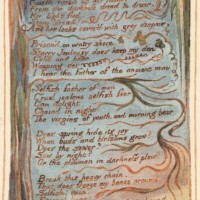 Earth raisd up her head,
From the darkness dread & drear.
Her light fled:
Stony dread!
And her locks cover'd with grey despair.
Prison'd on watry shore
Starry Jealousy does keep my den
Cold and hoar
Weeping o'er
I hear the father of the ancient men
Selfish father of men
Cruel jealous selfish fear
Can delight
Chain'd in night
The virgins of youth and morning bear.
Does spring hide its joy
When buds and blossoms grow?
Does the sower?
Sow by night?
Or the plowman in darkness plow?
Break this heavy chain,
That does freeze my bones around
Selfish! vain,